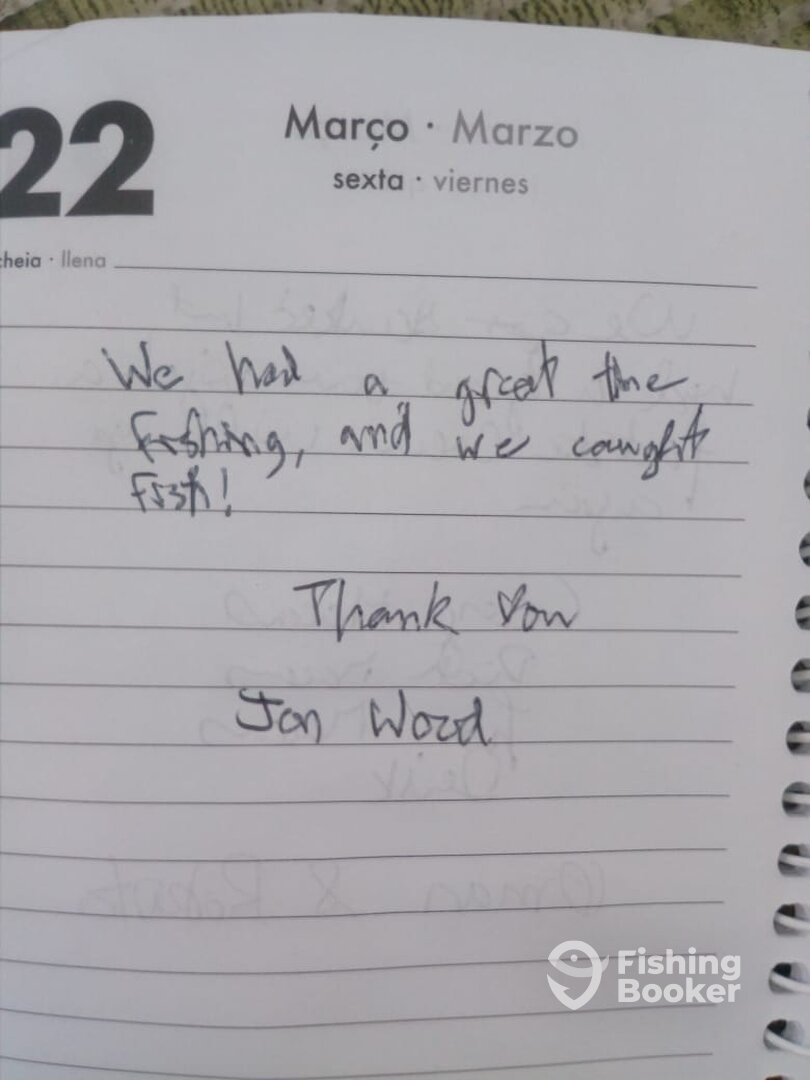 22
Março · Marzo
sexta · viernes
cheia · llena
We had a great time
fishing, and we caught
fish!
Thank You
Jon Wood
Fishing
Booker